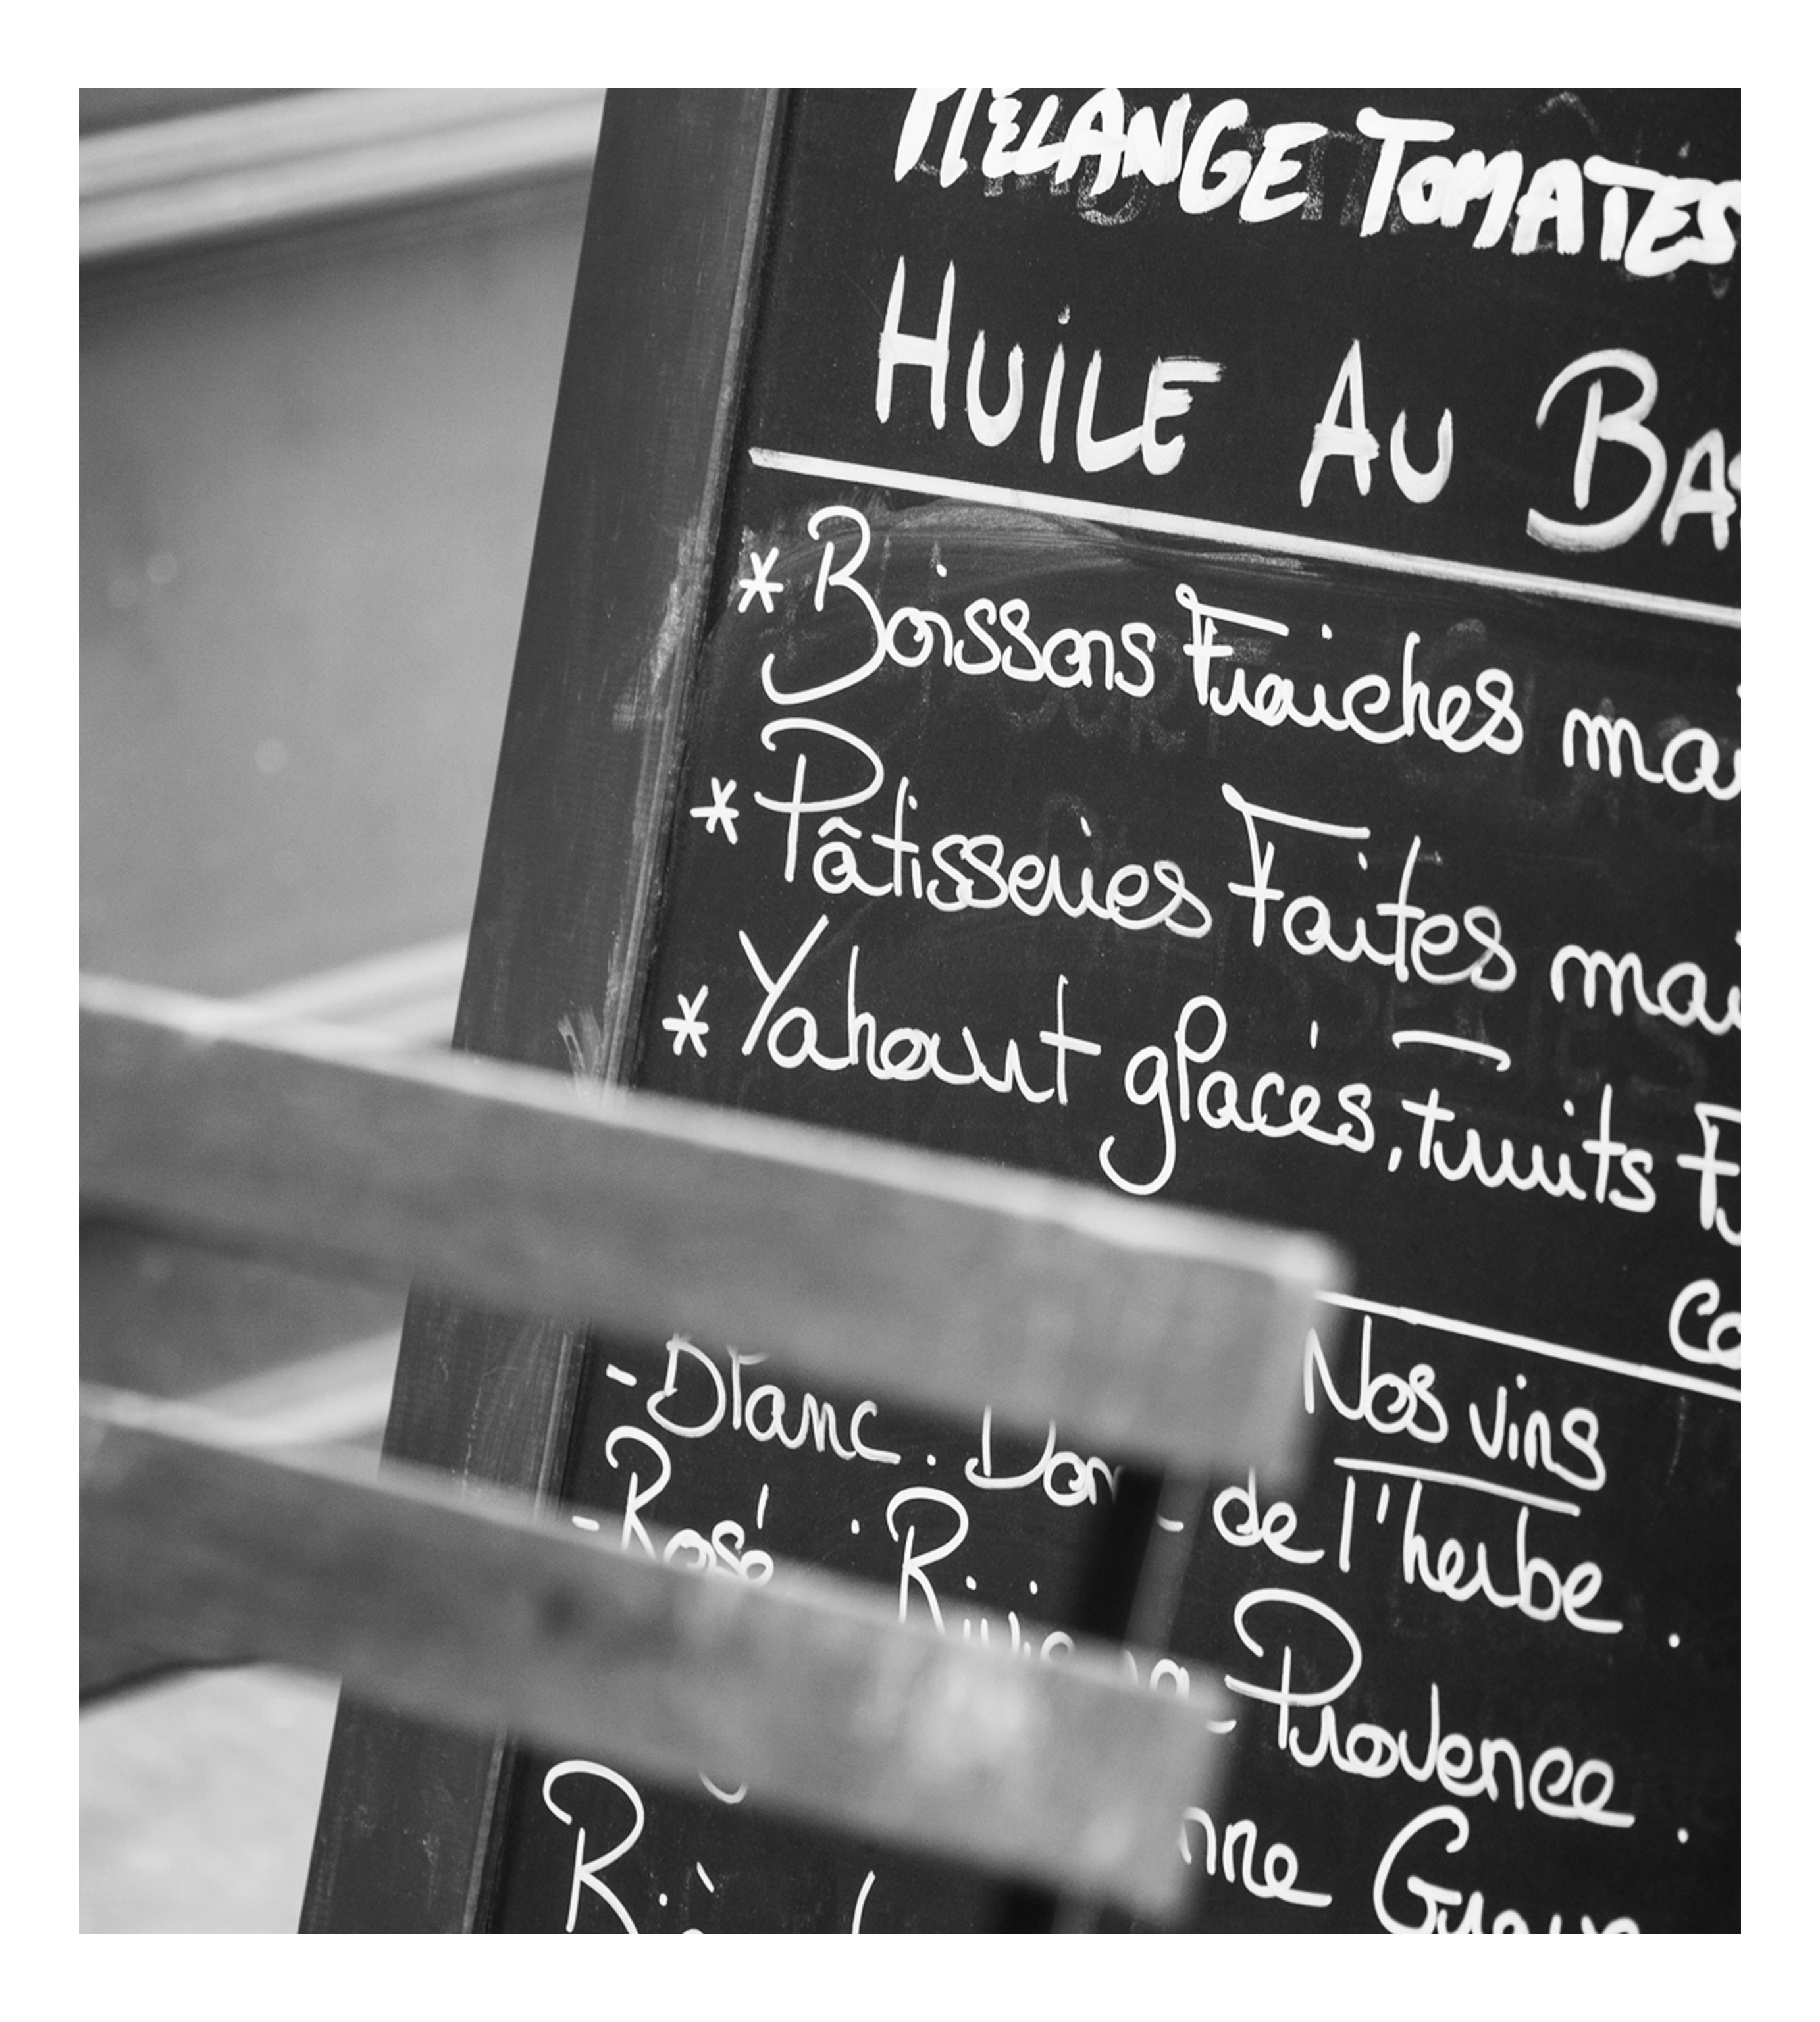 MÉLANGE TOMATES
HUILE AU BAS
* Boissons Fraiches mai
* Pâtisseries Faites mai
* Yahourt glacés, fruits F
co
Nos vins
- Blanc . Dom de l'herbe .
- Rosé . Provence .
nne